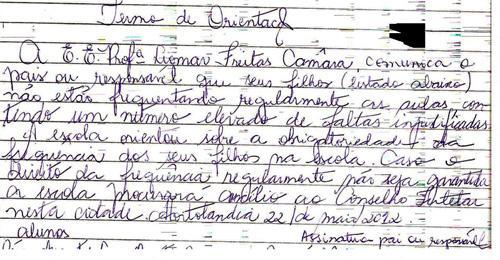 Termo de Orientaç
A E. E. Profª Liomar Freitas Camâra, comunica o
pais ou responsável que seus filhos (listado abaixo)
não estão frequentando regularmente as aulas con
tindo um número elevado de faltas injutificadas.
A escola orientou sobre a obrigatoriedade da
frequencia dos seus filhos na escola. Caso o
direito da frequência regularmente não seja garantida
a escola procurará auxílio ao Conselho Tutelar
nesta cidade. Hortolandia 22 de maio 2012.
alunos
Assinatura pai ou responsável